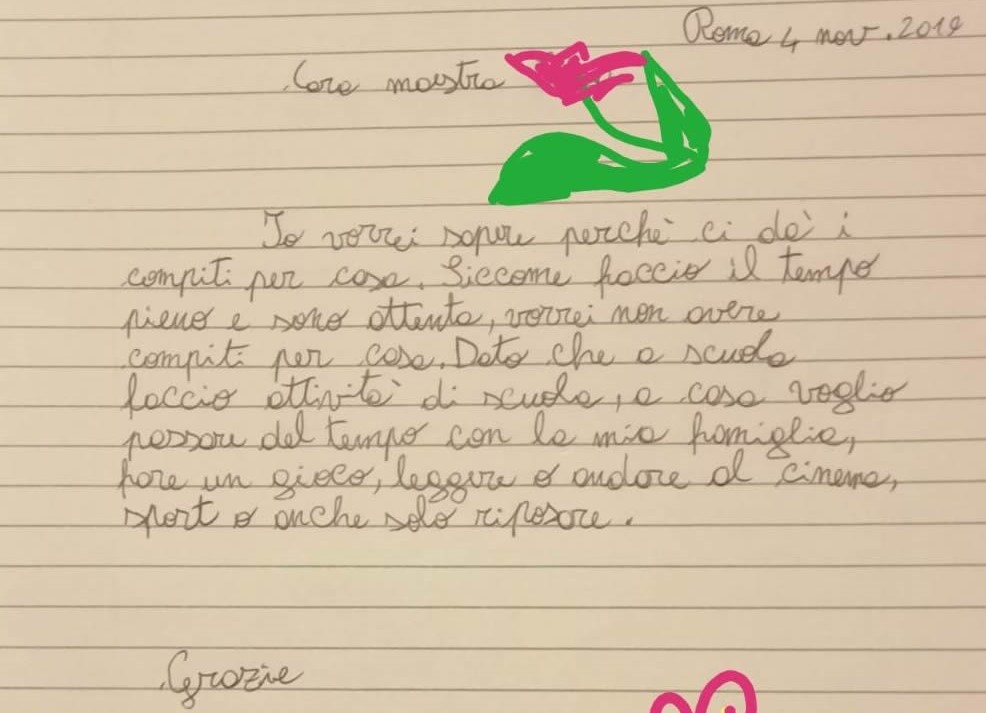 Roma 4 nov. 2019
Cara maestra
Io vorrei sapere perchè ci dà i
compiti per casa. Siccome faccio il tempo
pieno e sono attenta, vorrei non avere
compiti per casa. Dato che a scuola
faccio attività di scuola, a casa voglio
passare del tempo con la mia famiglia,
fare un gioco, leggere o andare al cinema,
sport o anche solo riposare.
Grazie